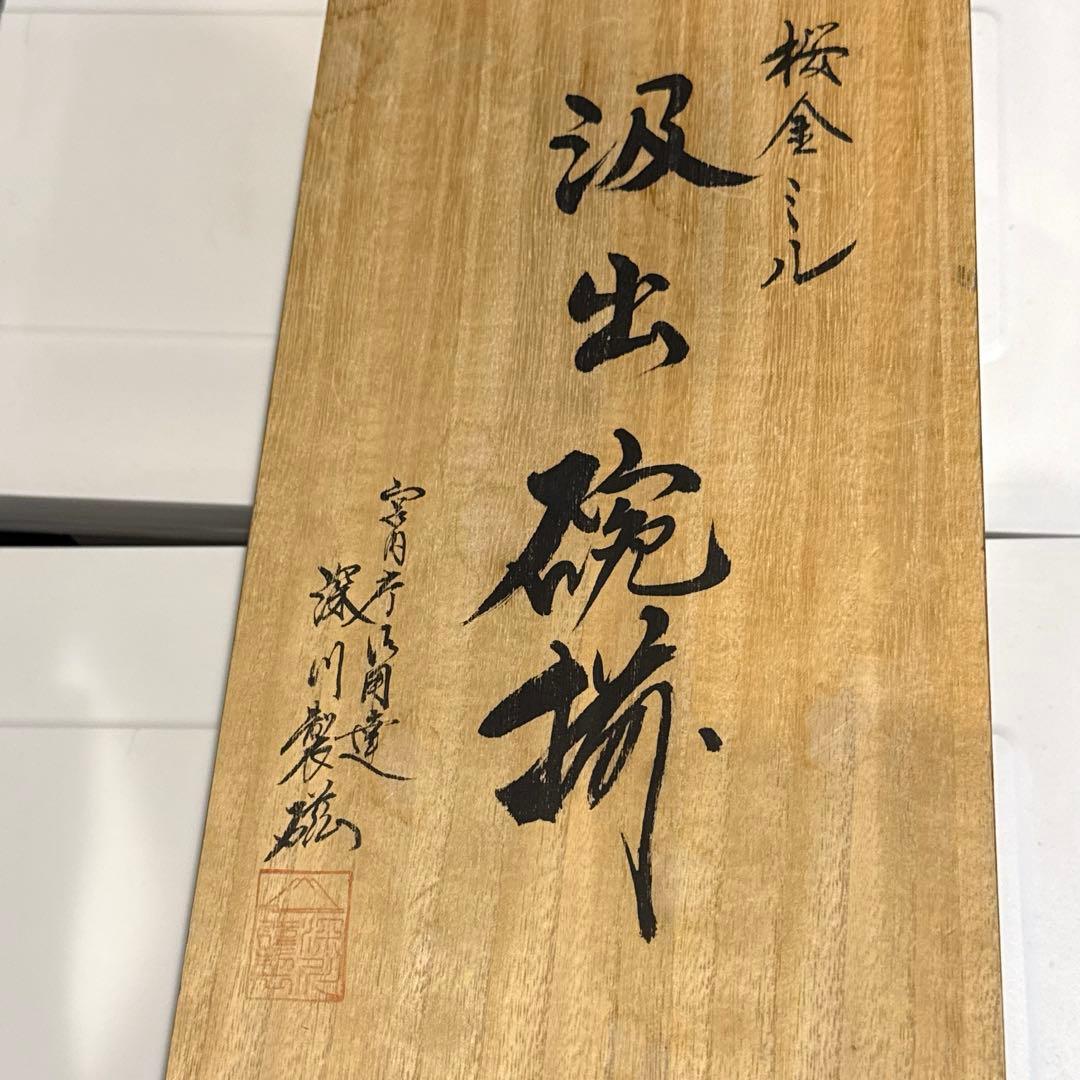 桜金ミル
汲出碗揃
宮内庁御用達
深川製磁